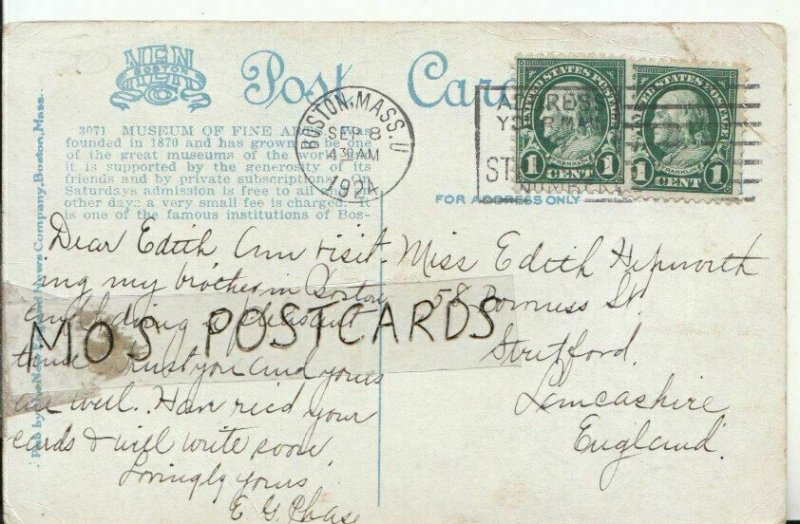 NEN
BOSTON
Post Card
3071 MUSEUM OF FINE ARTS. Was
founded in 1870 and has grown to be one
of the great museums of the world
it is supported by the generosity of its
friends and by private subscriptions. On
Saturdays admission is free to all
other days a very small fee is charged. It
is one of the famous institutions of Bos-
BOSTON, MASS. U
SEP 8
4 30 AM
1924
ADDRESS
YOUR MAIL
ST
NUMBER
UNITED STATES POSTAGE
FRANKLIN
1 CENT 1
UNITED STATES POSTAGE
FRANKLIN
1 CENT 1
FOR ADDRESS ONLY
Pub by The New England News Company, Boston, Mass.
Dear Edith Am visit-
ing my brother in Boston
and a pleasant
time Trust you and yours
are well. Have rec'd your
cards & will write soon.
Lovingly yours
E G Chase
Miss Edith Hepworth
58 Bowness St.
Stretford.
Lancashire
England.
MOS POSTCARDS